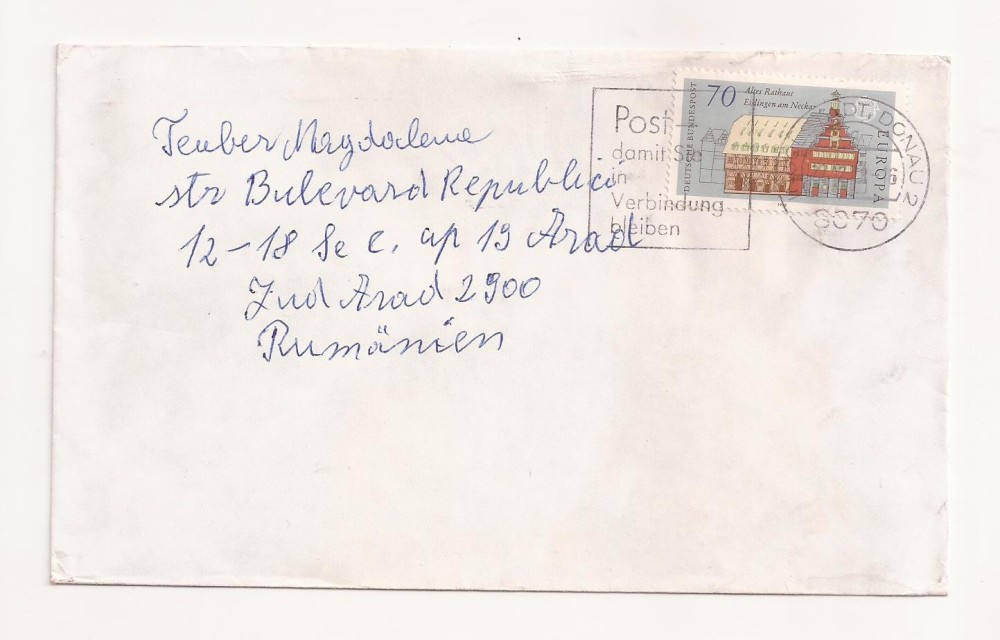 Teuber Magdalena
str Bulevard Republicii
12-18 Se C, ap 19 Arad
Jud Arad 2900
Rumänien
Post -
damit Sie
in
Verbindung
bleiben
70
Altes Rathaus
Esslingen am Neckar
DEUTSCHE BUNDESPOST
EUROPA
ADT, DONAU 2
8070